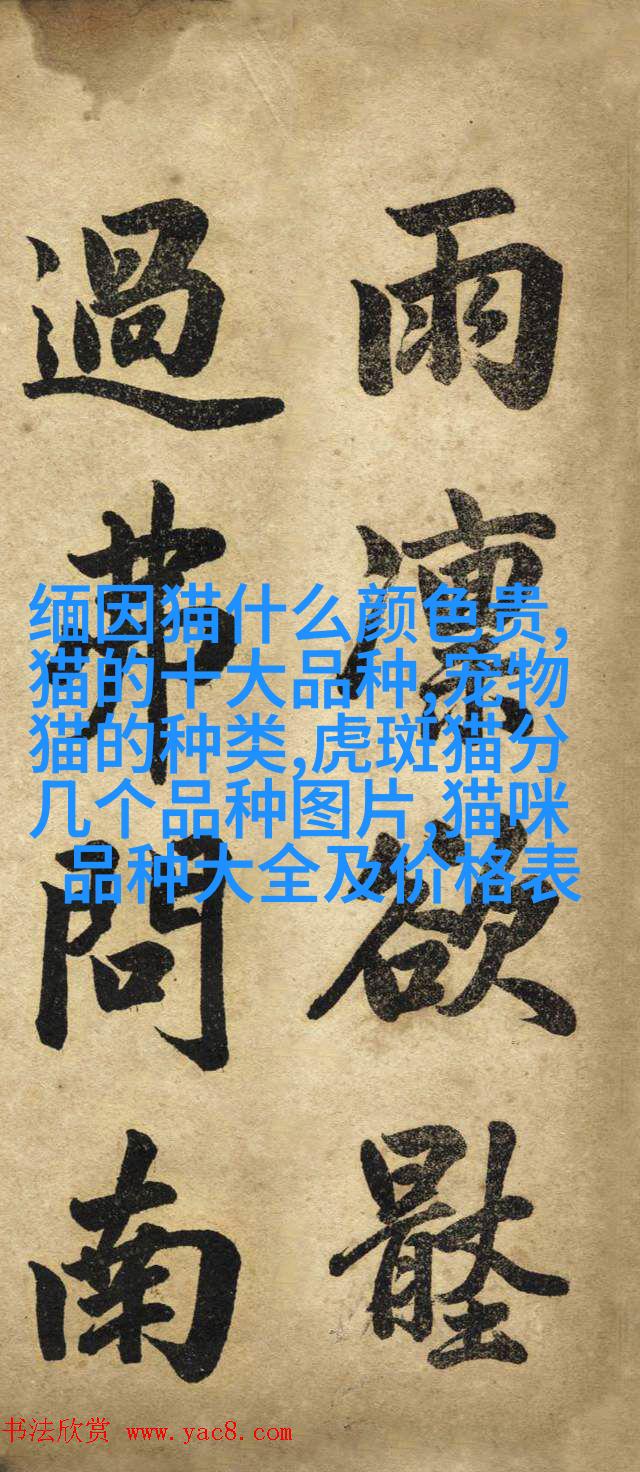 雨欲
過問南
缅因猫什么颜色贵,
猫的十大品种,宠物
猫的种类,虎斑猫分
几个品种图片,猫咪
品种大全及价格表
书法欣赏 www.yac8.com